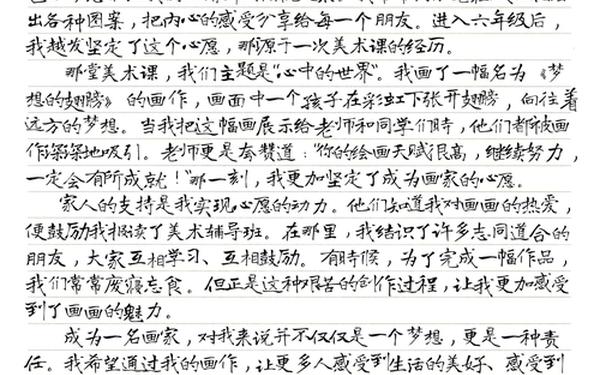 出各种图案，把内心的感受分享给每一个朋友。进入六年级后，
我越发坚定了这个心愿，那源于一次美术课的经历。
那堂美术课，我们主题是“心中的世界”。我画了一幅名为《梦
想的翅膀》的画作，画面中一个孩子在彩虹下张开翅膀，向往着
远方的梦想。当我把这幅画展示给老师和同学们时，他们都被画
作深深地吸引。老师更是夸赞道：“你的绘画天赋很高，继续努力，
一定会有所成就！”那一刻，我更加坚定了成为画家的心愿。
家人的支持是我实现心愿的动力。他们知道我对画画的热爱，
便鼓励我报读了美术辅导班。在那里，我结识了许多志同道合的
朋友，大家互相学习、互相鼓励。有时候，为了完成一幅作品，
我们常常废寝忘食。但正是这种艰苦的创作过程，让我更加感受
到了画画的魅力。
成为一名画家，对我来说并不仅仅是一个梦想，更是一种责
任。我希望通过我的画作，让更多人感受到生活的美好、感受到